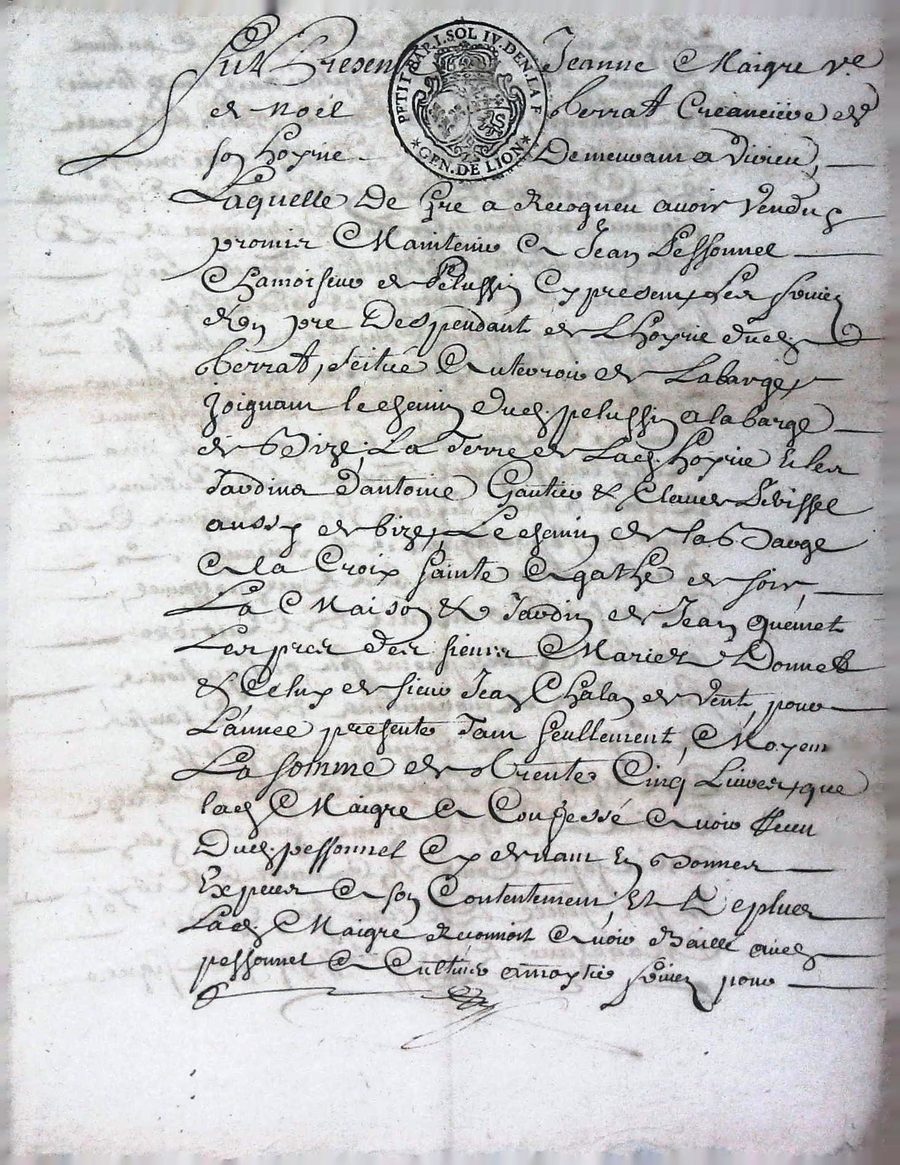 PETIT PAP. 1. SOL IV. DEN. LA F
GEN. DE LION
Fut Presen Jeanne Maigre ve
de noël Verrat Creanciere de
son hoyrie Demeurant a Virieu,
Laquelle De gre a Recogneu avoir vendu &
promis Maintenir A Jean Pessonnel
Chamoiseur de Pelussin Cy present Les foins
d'un pre Despendant de L'hoyrie dud.
Verrat, scitué Au terroir de Labarge,
Joignant le chemin dud. pelussin a la barge
de Bize, La Terre de Lad. hoyrie & les
Jardins d'antoine Gautier & Claude
aussy de bize, Le chemin de la Barge
A la Croix Sainte Agathe de soir,
La Maison & Jardin de Jean quemet
Les prez des sieurs Mariet Donnet
& Celuy de sieur Jean Chalan de vent, pour
L'année presente Tant seullement, Moyen
La somme de Trente Cinq Livres, que
lad. Maigre A Confessé Avoir Receu
Dud. pessonnel Cy devant En donner
Expres A son Contentement Et de plus
Lad. Maigre Reconnoit Avoir Baillé aud.
pessonnel A Cultiver a moytié pour